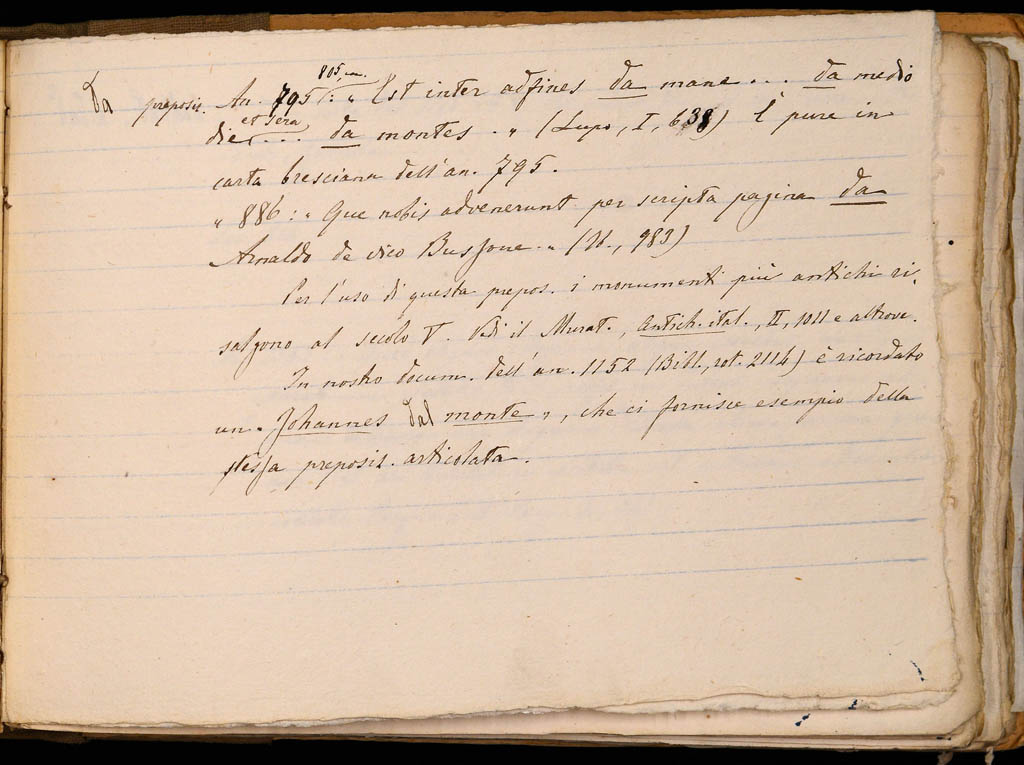 Da preposiz. An. 795: " Est inter adfines da mane ... da medio
die et sera .... da montes. " (Lupo, I, 638) È pure in
carta bresciana dell'an. 795.
" 886: " Que nobis advenerunt per scripta pagina da
Arnaldo de vico Bussone. " (Ib., 983)
Per l'uso di questa prepos. i monumenti più antichi ri-
salgono al secolo V. Vedi il Murat., Antich. ital., II, 1011 e altrove.
In nostro docum. dell'an. 1152 (Bibl., rot. 2114) è ricordato
un " Johannes dal monte ", che ci fornisce esempio della
stessa preposiz. articolata.